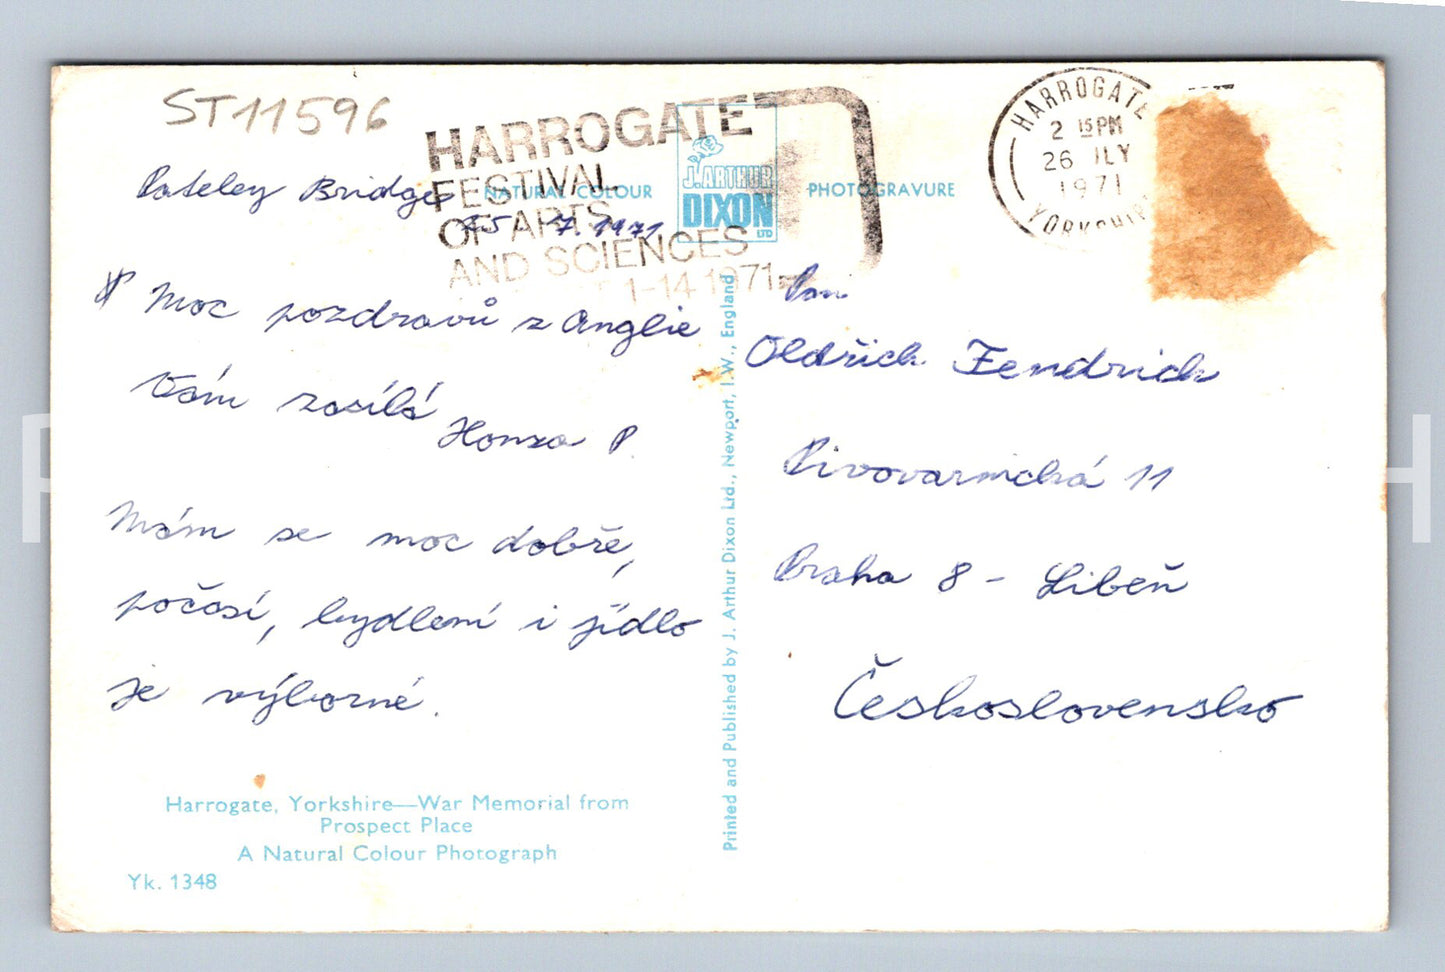 ST11596
HARROGATE
FESTIVAL
OF ARTS
AND SCIENCES
1-14 1971
NATURAL COLOUR
J. ARTHUR
DIXON
LTD
PHOTOGRAVURE
HARROGATE
2 15 PM
26 JLY
1971
YORKSHIR
Pateley Bridge
25. 7. 1971
Moc pozdravů z Anglie
Vám zasílá
Honza P.
Mám se moc dobře,
počasí, bydlení i jídlo
je výborné.
Harrogate, Yorkshire—War Memorial from
Prospect Place
A Natural Colour Photograph
Yk. 1348
Printed and Published by J. Arthur Dixon Ltd., Newport, I.W., England
Pan
Oldřich Fendrich
Pivovarnická 11
Praha 8 - Libeň
Československo